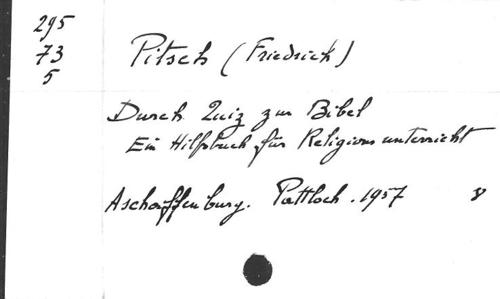 295
73
5
Pitsch (Friedrich)
Durch Quiz zur Bibel
Ein Hilfsbuch für Religionsunterricht
Aschaffenburg. Pattloch. 1957 8